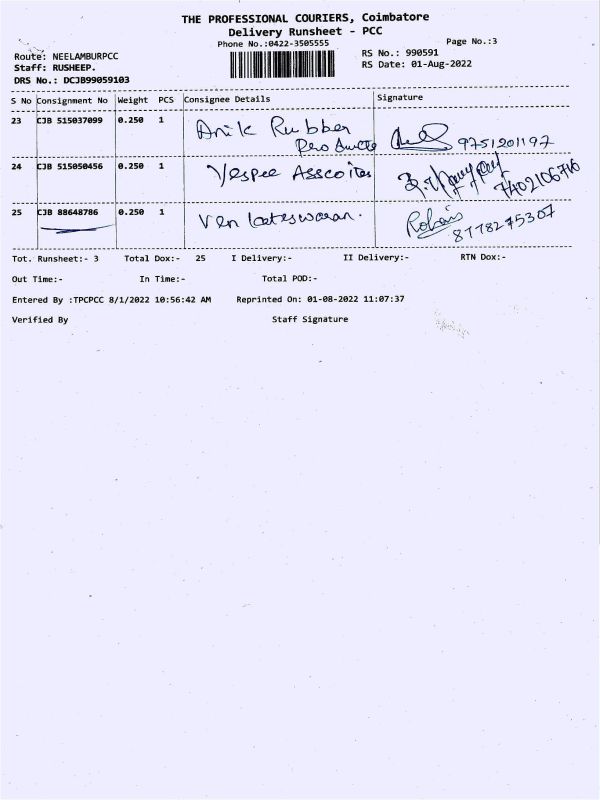 THE PROFESSIONAL COURIERS, Coimbatore
Delivery Runsheet - PCC
Phone No.:0422-3505555
Page No.:3
Route: NEELAMBURPCC
RS No.: 990591
Staff: RUSHEEP.
RS Date: 01-Aug-2022
DRS No.: DCJB99059103
S No Consignment No Weight PCS Consignee Details Signature
23 CJB 515037099 0.250 1 Anik Rubber
Products 9751201197
24 CJB 515050456 0.250 1 Vespee Asscoites
7402106716
25 CJB 88648786 0.250 1 Venkateswaran.
8778275307
Tot. Runsheet:- 3 Total Dox:- 25 I Delivery:- II Delivery:- RTN Dox:-
Out Time:- In Time:- Total POD:-
Entered By :TPCPCC 8/1/2022 10:56:42 AM Reprinted On: 01-08-2022 11:07:37
Verified By Staff Signature